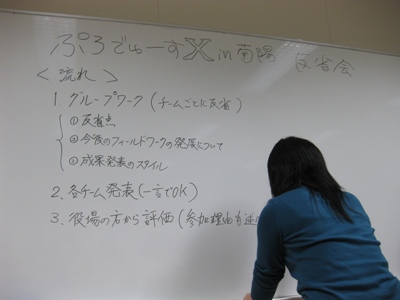 ぷろでゅーすX in 南陽 反省会
<流れ>
1 グループワーク (チームごとに反省)
①反省点
②今後のフィールドワークの発展について
③成果発表のスタイル
2. 各チーム発表(一言でOK)
3. 役場の方から評価(参加理由